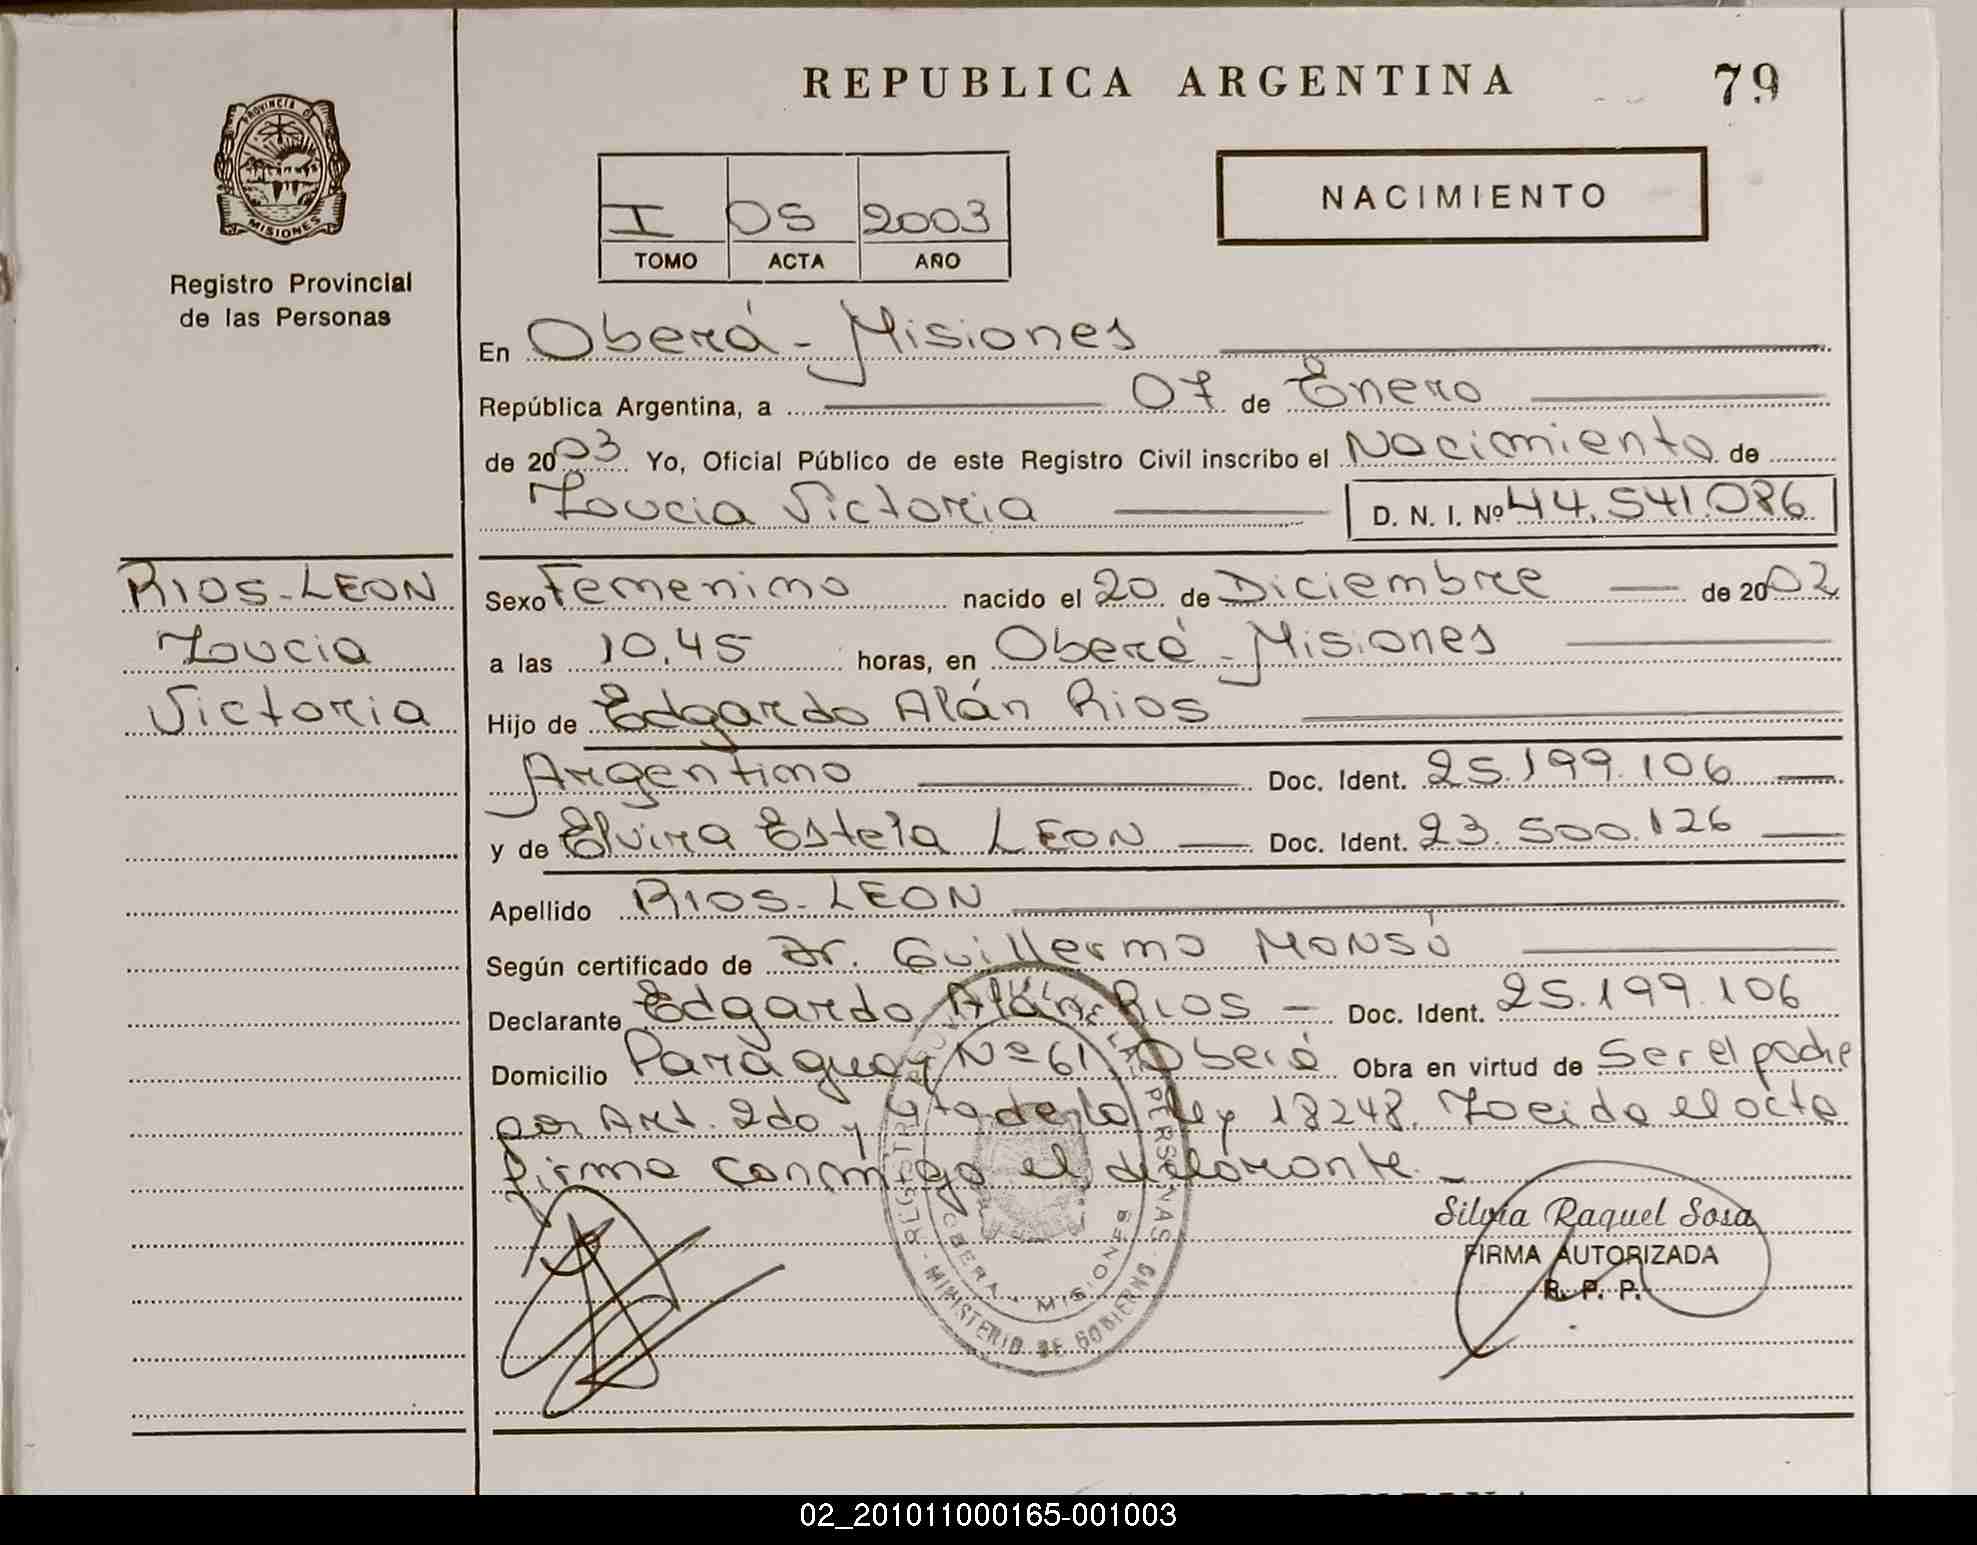 REPUBLICA ARGENTINA
79
PROVINCIA DE
MISIONES
Registro Provincial
de las Personas
I 05 2003
TOMO ACTA AÑO
NACIMIENTO
En Oberá - Misiones
República Argentina, a 07 de Enero
de 2003 Yo, Oficial Público de este Registro Civil inscribo el Nacimiento de
Loucia Victoria D. N. I. Nº 44.541.086
RIOS-LEON
Loucia
Victoria
Sexo Femenino nacido el 20 de Diciembre de 2002
a las 10.45 horas, en Oberá - Misiones
Hijo de Edgardo Alán Rios
Argentino Doc. Ident. 25.199.106
y de Elvira Estela LEON Doc. Ident. 23.500.126
Apellido RIOS-LEON
Según certificado de Dr. Guillermo MONSÚ
Declarante Edgardo Alán RIOS - Doc. Ident. 25.199.106
Domicilio Paraguay Nº 61 Oberá Obra en virtud de Ser el padre
por Art. 2do y 4to de la ley 18248. Leida el acta
firma conmigo el declarante.
REGISTRO DE LAS PERSONAS
MINISTERIO DE GOBIERNO
OBERA - MISIONES
Silvia Raquel Sosa
FIRMA AUTORIZADA
R. P. P.
02_201011000165-001003